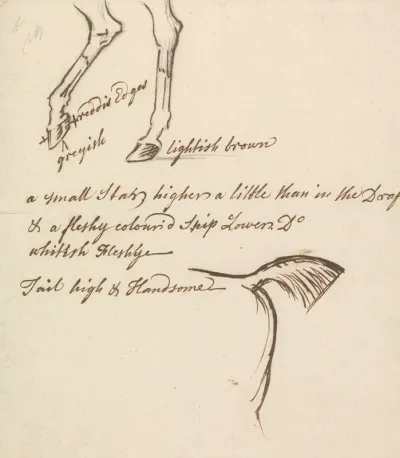 +reddis Edges
greyish
lightish brown
a small Star higher a little than in the Draf
& a fleshy colour'd Snip Lower Do
whitish Fleshye
Tail high & Handsome